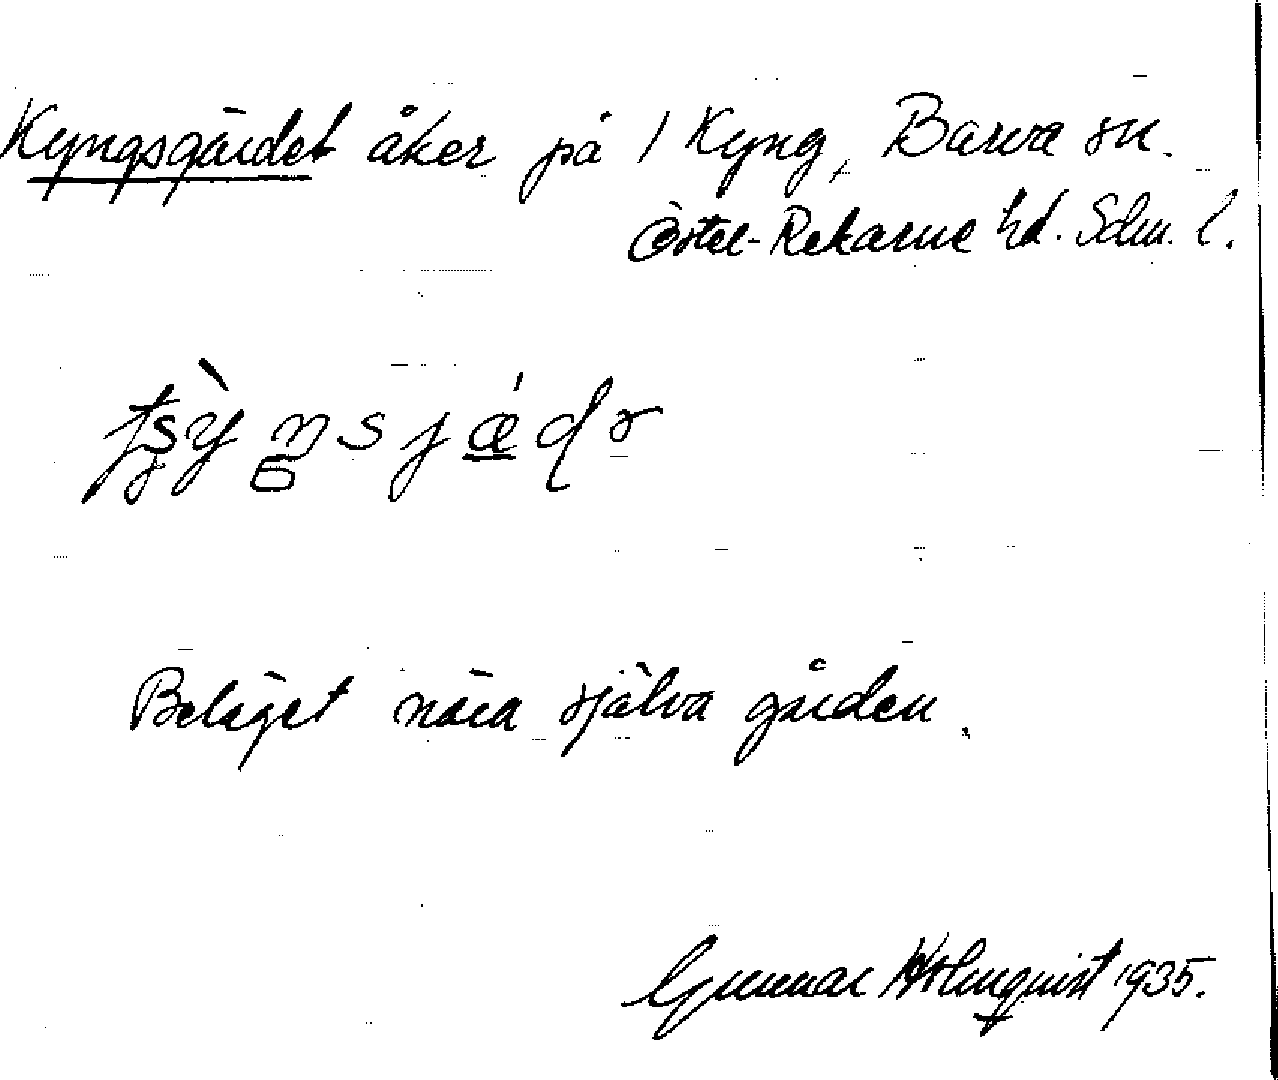 Kyngsgärdet åker på 1 Kyng, Barva sn.
Öster-Rekarne hd. Sdm. l.
Beläget nära själva gården.
Gunnar Holmquist 1935.